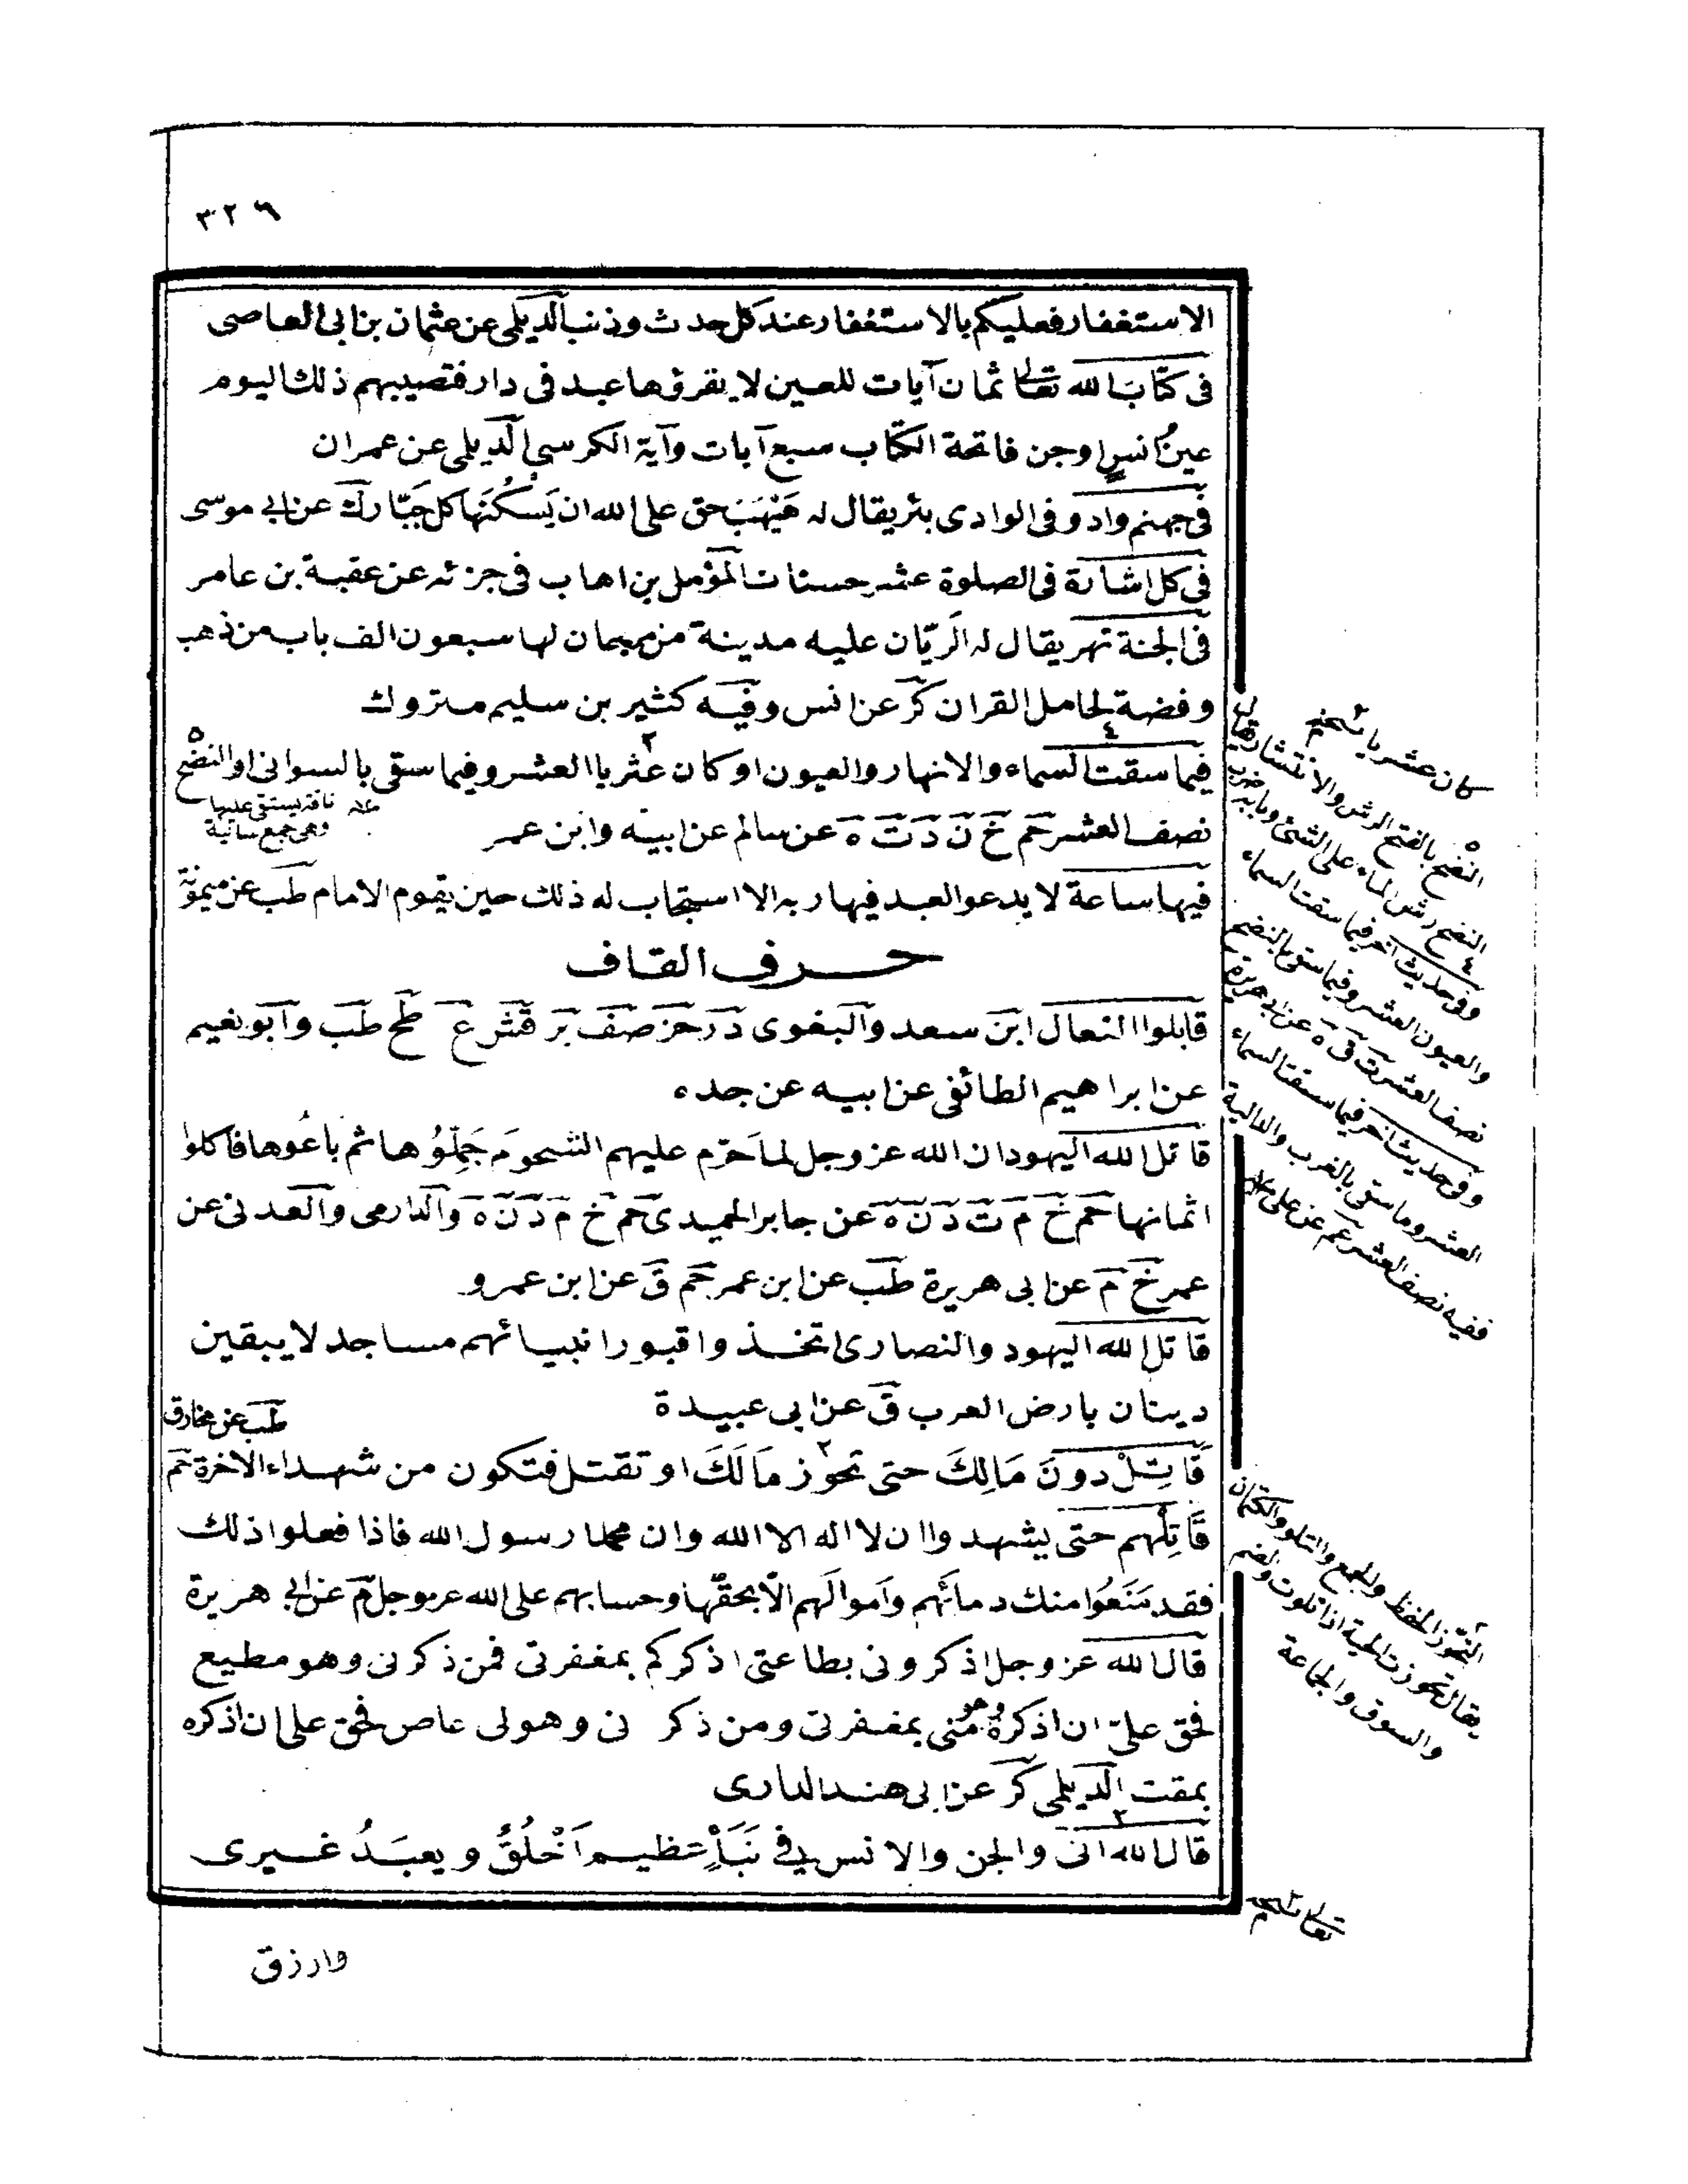 ٣٢٦
الاستغفار فعليكم بالاستغفار عند كل حدث وذنب الديلمى عن عثمان بن ابى العاصى
فى كتاب الله تعالى ثمان آيات للعين لا يقرؤها عبد فى دار فتصيبهم ذلك اليوم
عين انس او جن فاتحة الكتاب سبع آيات وآية الكرسى الديلمى عن عمران
فى جهنم واد و فى الوادى بئر يقال له هَبْهَب حق على الله ان يَسْكُنَها كل جَبَّار ك عن ابى موسى
فى كل اشارة فى الصلوة عشر حسنات المؤمل بن اهاب فى جزئه عن عقبة بن عامر
فى الجنة نهر يقال له الرَيّان عليه مدينة من مرجان لها سبعون الف باب من ذهب
وفضة لحامل القران كر عن انس وفيه كثير بن سليم متروك
فيما سقت السماء والانهار والعيون او كان عثريا العشر وفيما سقى بالسوانى او النضح
نصف العشر حم خ ن د ت ه عن سالم عن ابيه وابن عمر
عه ناقة يستقى عليها
وهى جمع سانية
فيها ساعة لا يدعو العبد فيها ربه الا استجاب له ذلك حين يقوم الامام طب عن ميمونة
حرف القاف
قابلوا النعال ابن سعد والبغوى د ر حز صف بر قش ع طح طب وابو نعيم
عن ابراهيم الطائفى عن ابيه عن جده
قاتل الله اليهود ان الله عز وجل لما حَرَّم عليهم الشحومَ جَمَّلُوُها ثم باعُوها فاكلوا
اثمانها حم خ م ت د ن ه عن جابر الحميدى حم خ م د ن ه والدارمى والعدنى عن
عمر خ م عن ابى هريرة طب عن ابن عمر حم ق عن ابن عمرو
قاتل الله اليهود والنصارى اتخذوا قبور انبيائهم مساجد لا يبقين
دينان بارض العرب ق عن ابى عبيدة
طب عن مخارق
قَاتِلْ دونَ مَالِكَ حتى تحوز مَا لَكَ او تقتل فتكون من شهداء الاخرة حم
قَاتِلْهم حتى يشهدوا ان لا اله الا الله وان محمدا رسول الله فاذا فعلوا ذلك
فقد مَنَعُوا منك دمائَهم وَاموالَهم الّا بحقّها وحسابهم على الله عز وجل م عن ابى هريرة
قال الله عز وجل اذكرونى بطاعتى اذكركم بمغفرتى فمن ذكرنى وهو مطيع
فحق علىّ ان اذكرهُ منى بمغفرتى ومن ذكرنى وهو لى عاص فحق على ان اذكره
بمقت الديلمى كر عن ابى هند الدارى
قال الله انى والجن والانس فِى نَبَأٍ عظيم اَخْلُقُ ويعبَدُ غيرى
وارزق
كان عشريا نسخم
النضح بالفتح الرش والانتشار يقال
النضح رش الماء على الشئ وبابه ضرب
وفى حديث آخر فيما سقت السماء
والعيون العشر وفيما سقى بالنضح
نصف العشر ت ق ه عن ابى هريرة
وفى حديث آخر فيما سقت السماء
العشر وما سقى بالغرب والدالية
ففيه نصف العشر عم عن على
التحوز الحفظ والجمع والتلو والكتمان
يقال تحوزت الحية اذا تلوت والضم
والسوق والجماعة
تعالى نسخم